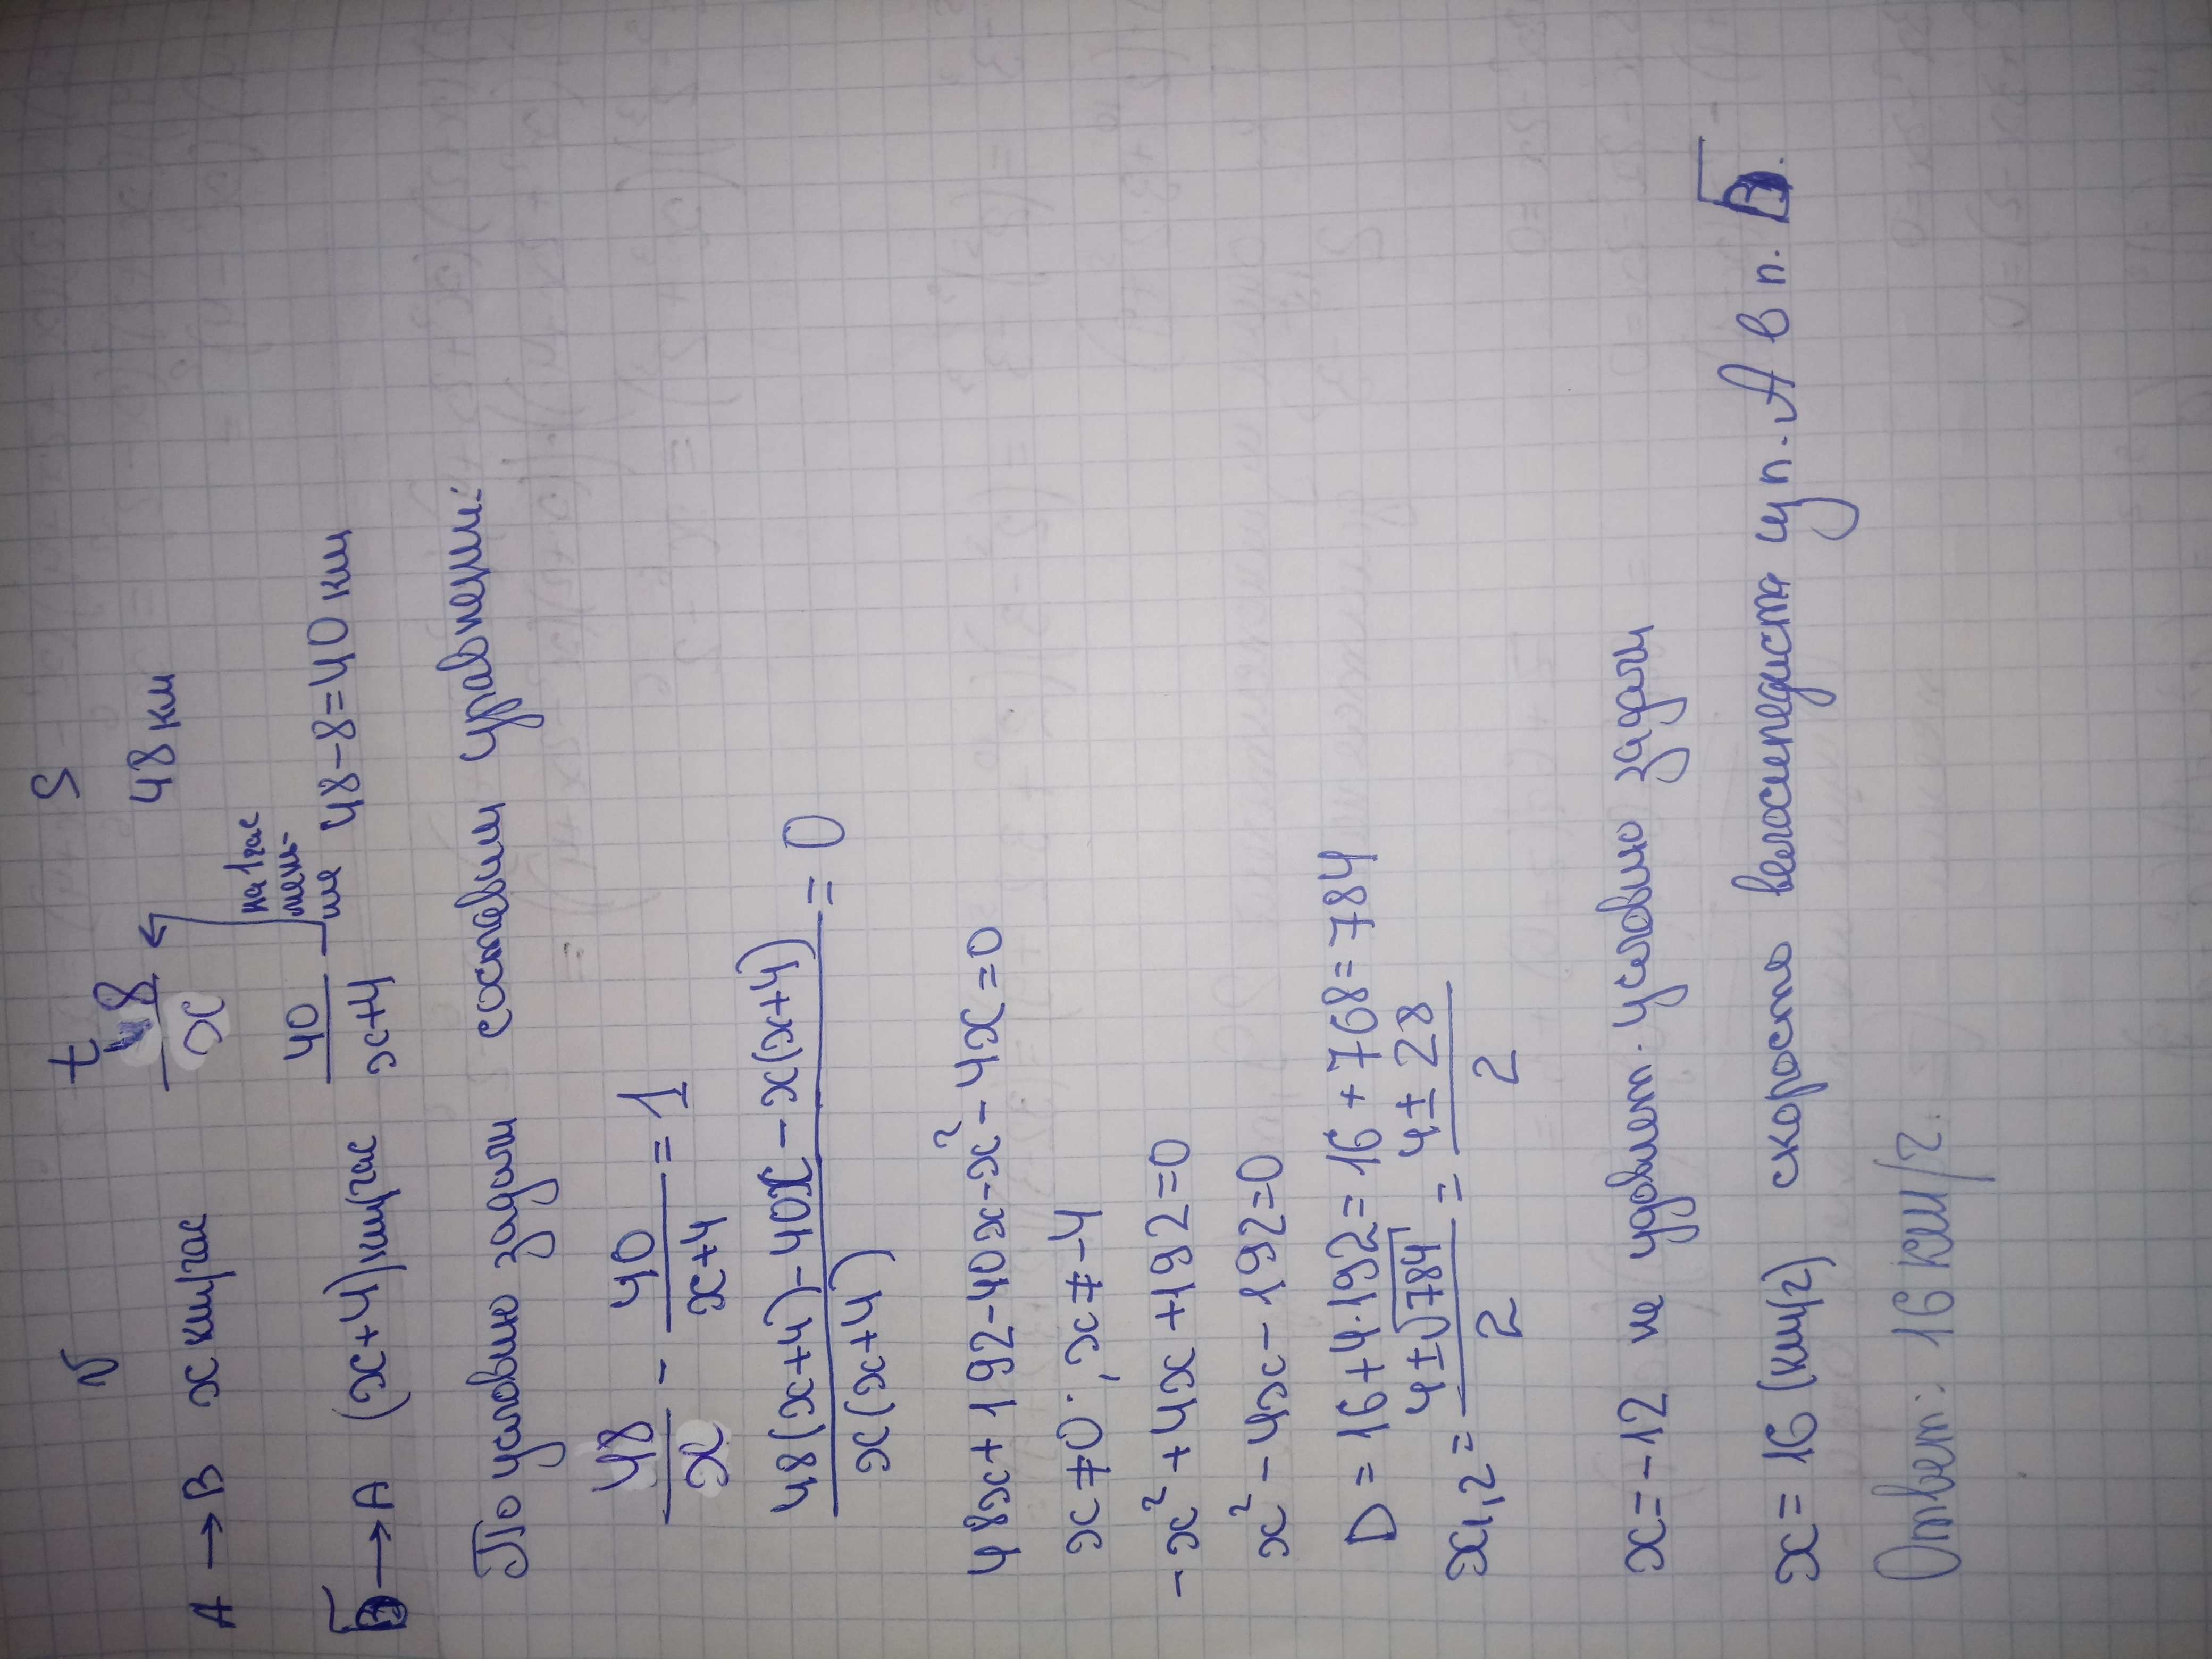 v t S
A → B x км/час 48/x 48 км
на 1 час
мень-
ше
Б → A (x+4) км/час 40/(x+4) 48-8=40 км
По условию задачи составим уравнение:
48/x - 40/(x+4) = 1
(48(x+4)-40x-x(x+4))/(x(x+4)) = 0
48x+192-40x-x²-4x=0
x≠0; x≠-4
-x²+4x+192=0
x²-4x-192=0
D=16+4·192=16+768=784
x1,2 = (4±√784)/2 = (4±28)/2
x=-12 не удовлет. условию задачи
x=16 (км/ч) скорость велосипедиста из п. А в п. Б.
Ответ: 16 км/ч.